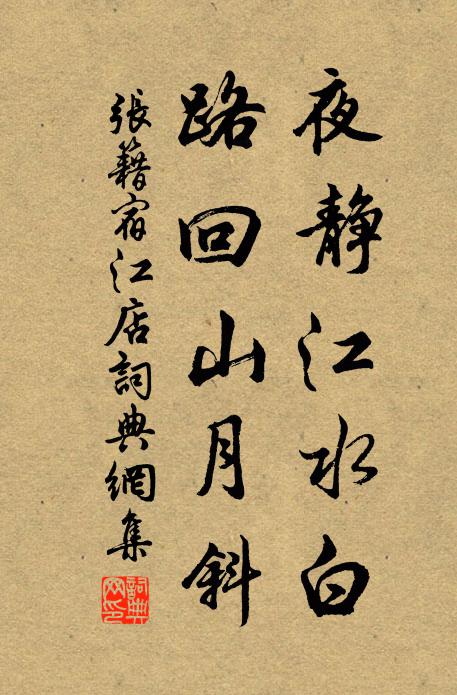 夜静江水白
路回山月斜
張籍宿江店詞典網集
詞典网印